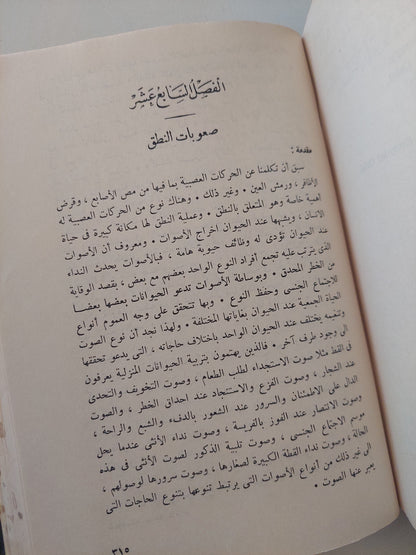 الفصل السابع عشر
صعوبات النطق
مقدمة :
سبق أن تكلمنا عن الحركات العصبية بما فيها من مص الأصابع ، وقرض
الأظافر ، ورمش العين . وغير ذلك . وهناك نوع من الحركات العصبية له
أهمية خاصة وهو المتعلق بالنطق . وعملية النطق لها مكانة كبيرة في حياة
الانسان ، ويشبهها عند الحيوان اخراج الأصوات . ومعروف أن الأصوات
عند الحيوان تؤدى له وظائف حيوية هامة ، فبالأصوات يحدث النداء
الذى يترتب عليه تجمع أفراد النوع الواحد بعضهم مع بعض ، بقصد الوقاية
من الخطر المحدق . وبوساطة الأصوات تدعو الحيوانات بعضها بعضا
للاجتماع الجنسى وحفظ النوع . وبها تتحقق على وجه العموم أنواع
الحياة الجمعية عند الحيوان بغاياتها المختلفة . ولهذا نجد أن نوع الصوت
وتنغيمه يختلف عند الحيوان الواحد باختلاف حاجاته ، التى يدعو تحققها
الى وجود طرف آخر . فالذين يهتمون بتربية الحيوانات المنزلية يعرفون
فى القط مثلا صوت الاستجداء لطلب الطعام ، وصوت التخويف والتحدى
عند الشجار ، وصوت الفزع والاستنجاد عند احداق الخطر ، والصوت
الدال على الاطمئنان والسرور عند الشعور بالدفء والشبع والراحة ،
وصوت الانتصار عند الفوز بالفريسة ، وصوت نداء الأنثى عندما يحل
موسم الاجتماع الجنسى ، وصوت تلبية الذكور لصوت الأنثى فى هذه
الحالة ، وصوت نداء القطة الكبيرة لصغارها ، وصوت سرورها لوصولهم ،
الى غير ذلك من أنواع الأصوات التى يرتبط تنوعها بتنوع الحاجات التى
يعبر عنها الصوت .
٣١٥